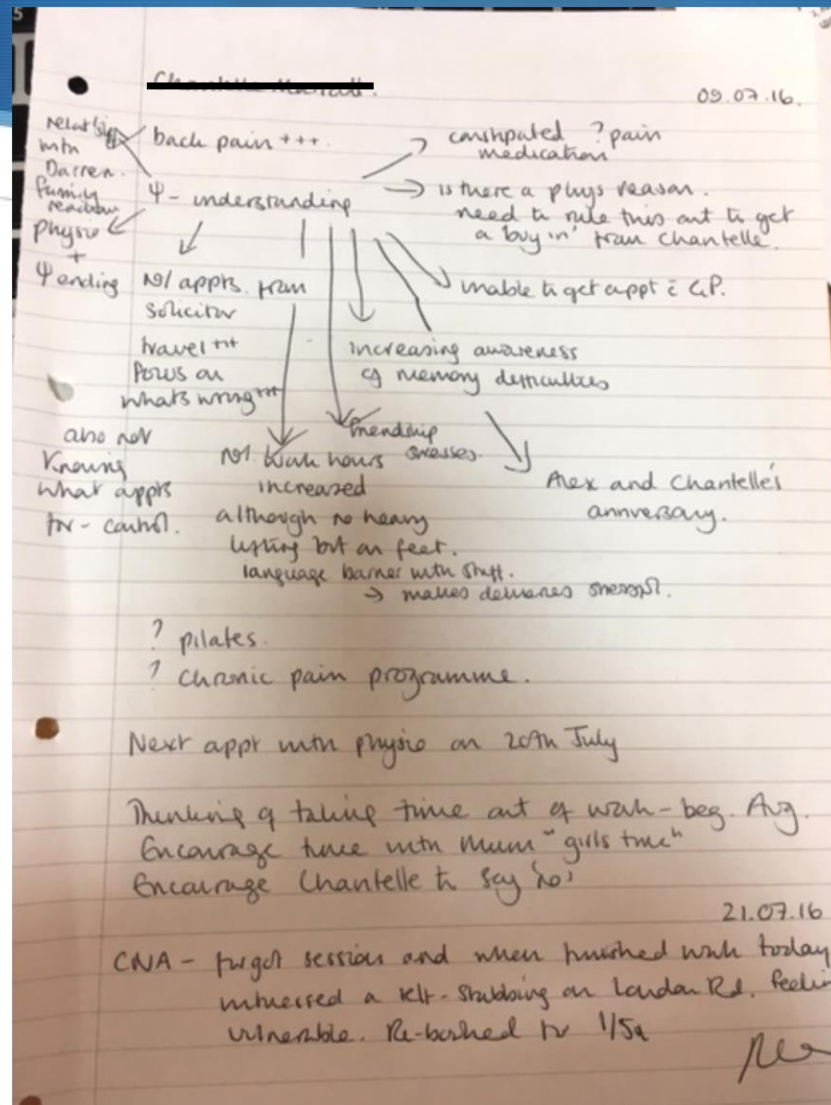 09.07.16.
back pain +++.
constipated ? pain
medication
Darren.
family
physio
+
Ψ ending
Ψ - understanding
is there a phys reason.
need to rule this out to get
a 'buy in' from Chantelle.
appts. from
solicitor
travel +++
focus on
whats wrong +++
unable to get appt c̄ G.P.
increasing awareness
of memory difficulties
also not
knowing
what appts
for - control.
friendship
stresses.
work hours
increased
although no heavy
lifting but on feet.
language barrier with staff.
→ makes demands
Alex and Chantelle's
anniversary.
? pilates.
? chronic pain programme.
Next appt with physio on 20th July
Thinking of taking time out of work - beg. Aug.
Encourage time with Mum "girls time"
Encourage Chantelle to say 'no'
21.07.16
CNA - forgot session and when finished work today
witnessed a self-stabbing on London Rd. feelin
vulnerable. Re-booked for